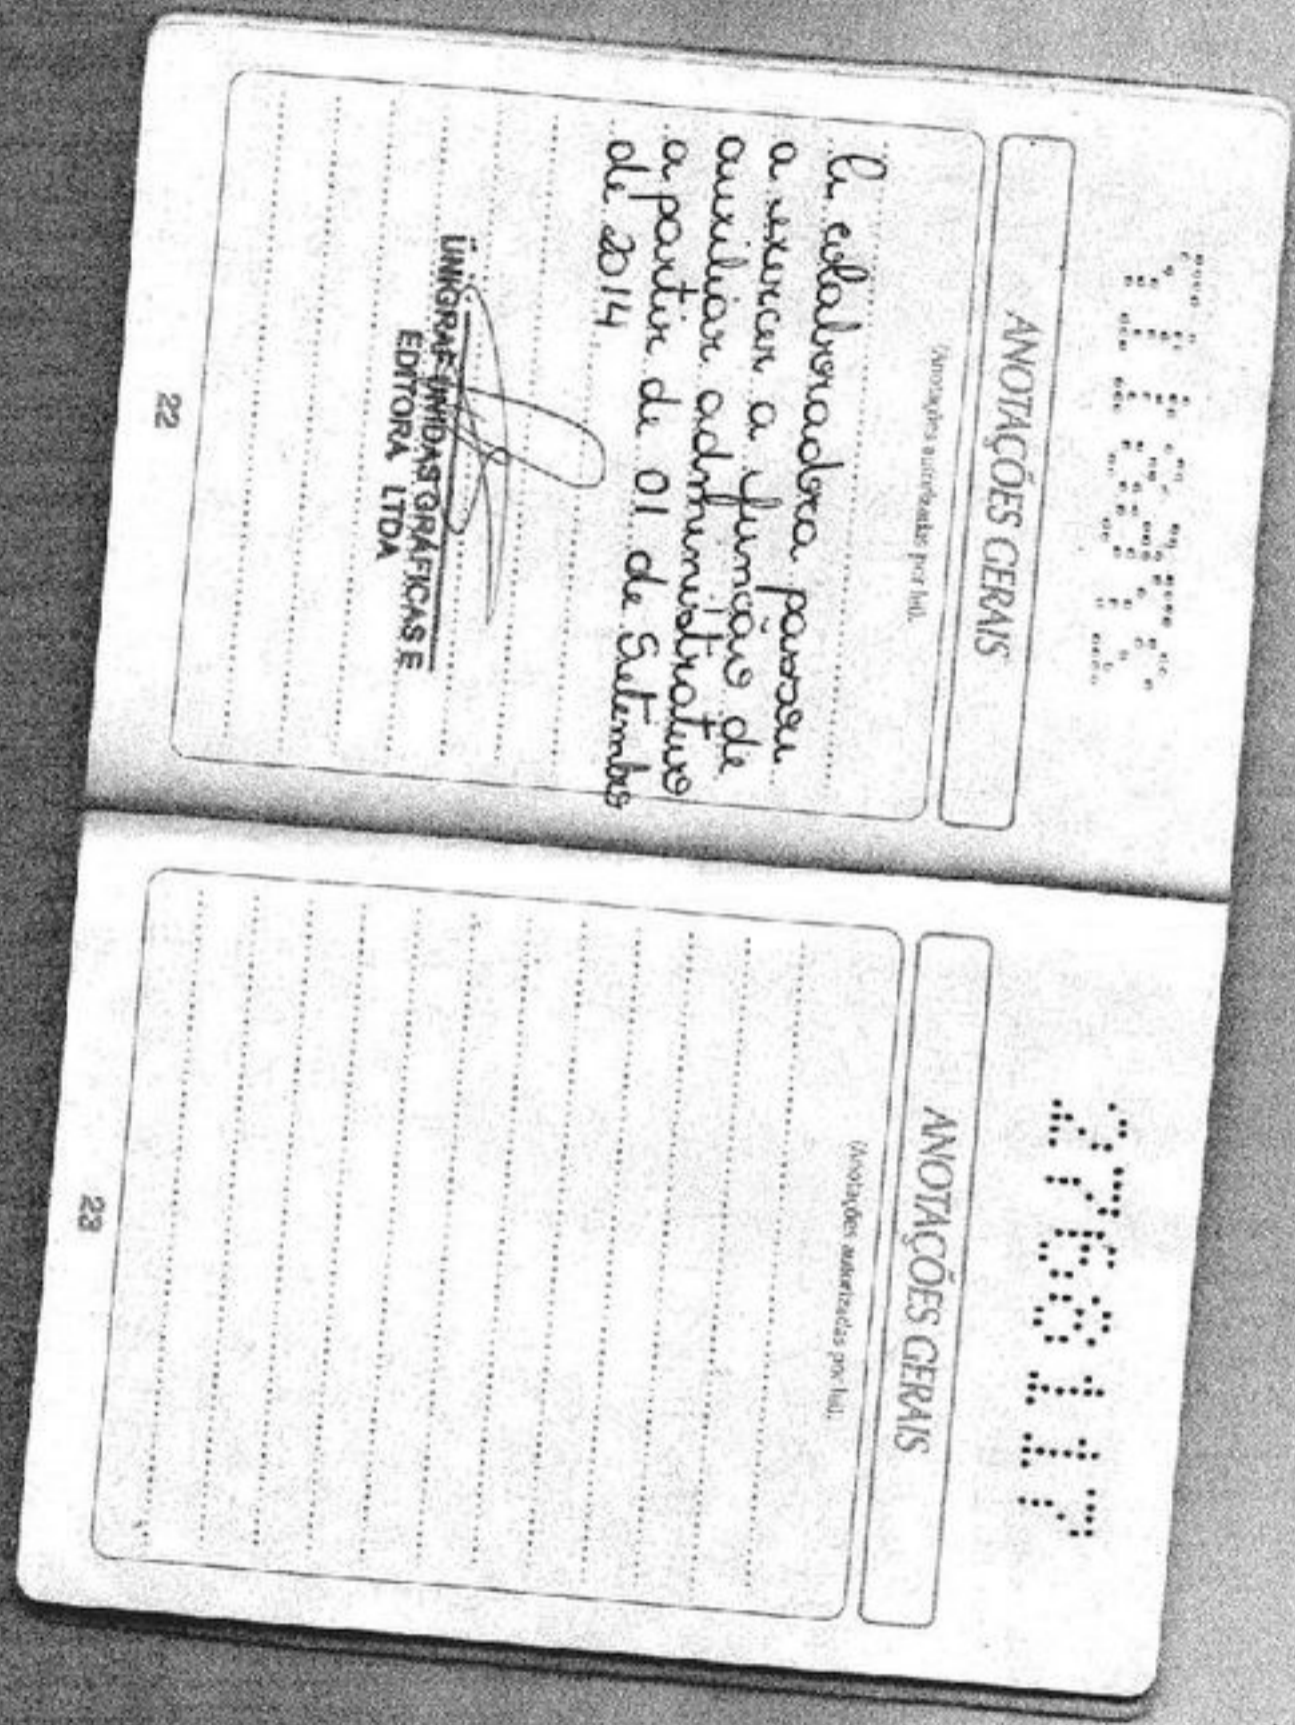 ANOTAÇÕES GERAIS
(Anotações autorizadas por lei).
A colaboradora passou
a exercer a função de
auxiliar administrativo
a partir de 01 de Setembro
de 2014.
UNIGRAF UNIDAS GRÁFICAS E
EDITORA LTDA
22
2768117
ANOTAÇÕES GERAIS
(Anotações autorizadas por lei).
23